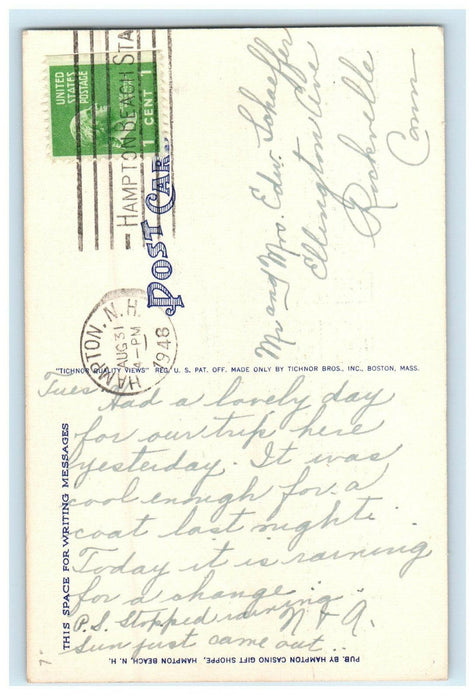 UNITED
STATES
POSTAGE
1 CENT 1
HAMPTON BEACH STA.
POST CARD
HAMPTON, N.H.
AUG 31
4-PM
1948
Mr and Mrs. Edw. Schaeffer
Ellington Ave
Rockville
Conn
"TICHNOR QUALITY VIEWS" REG. U. S. PAT. OFF. MADE ONLY BY TICHNOR BROS., INC., BOSTON, MASS.
THIS SPACE FOR WRITING MESSAGES
Tues
Had a lovely day
for our trip here
yesterday. It was
cool enough for a
coat last night.
Today it is raining
for a change.
N & A.
P.S. Stopped raining
Sun just came out..
PUB. BY HAMPTON CASINO GIFT SHOPPE, HAMPTON BEACH, N. H.